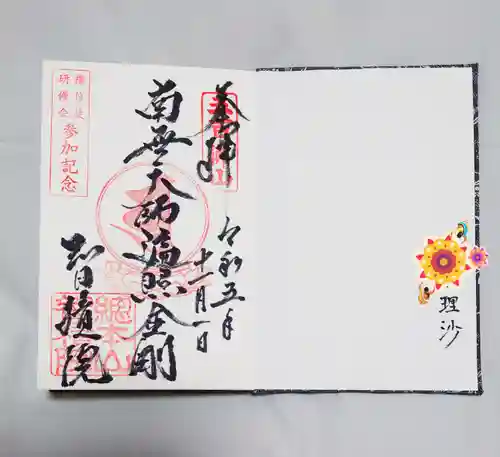 奉拝
令和五年
十一月一日
南無大師遍照金剛
智積院
研修会
参加記念
總本山
理沙